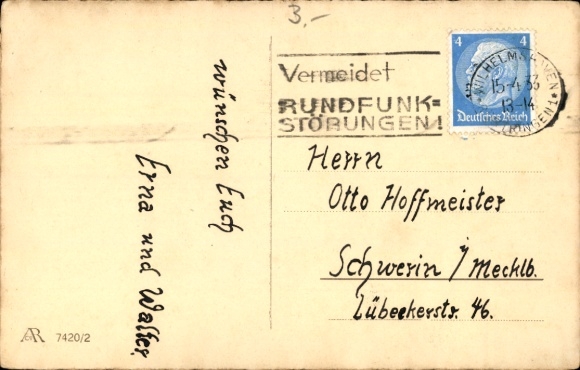 3.-
wünschen Euch
Erna und Walter.
AR 7420/2
Vermeidet
RUNDFUNK=
STÖRUNGEN!
4 4
Deutsches Reich
WILHELMSHAVEN
15-4 33
13-14
Herrn
Otto Hoffmeister
Schwerin i/Mecklb.
Lübeckerstr. 46.